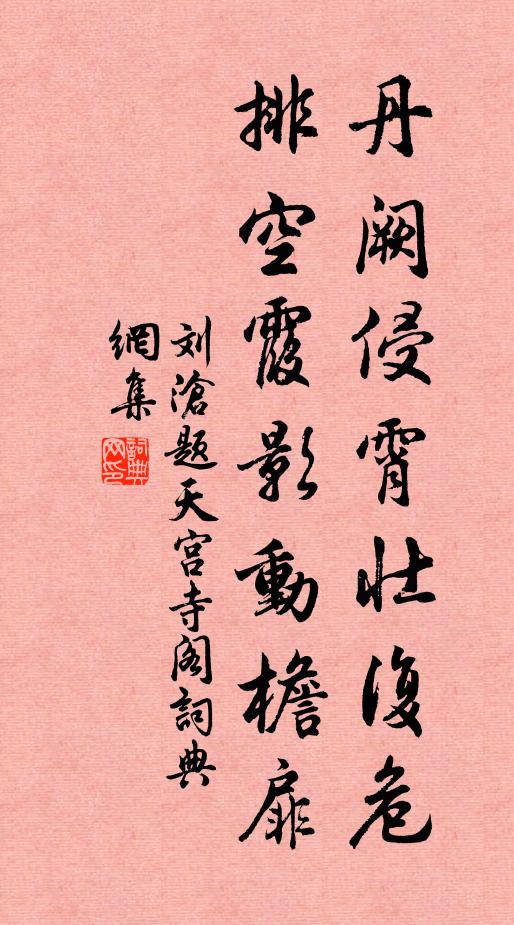 丹阙侵霄壮復危
排空霞影動檐扉
刘滄题天宫寺阁詞典
網集
詞典
网印